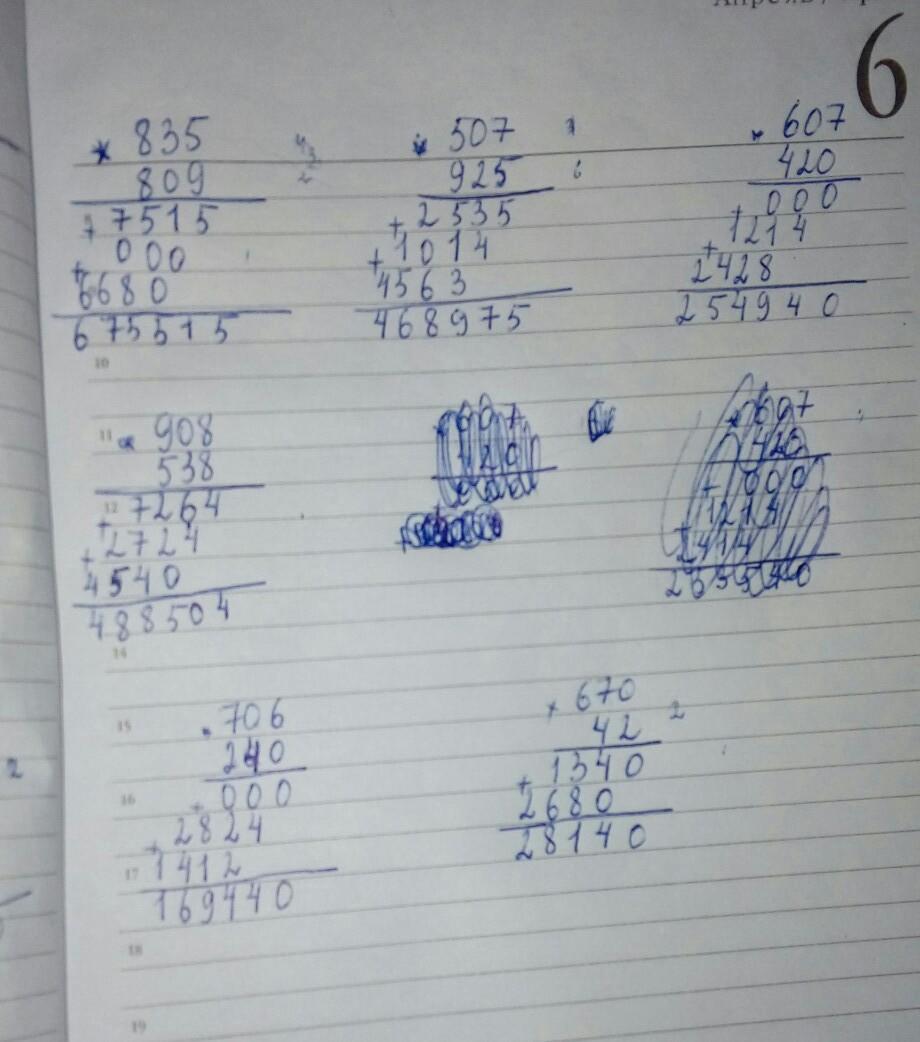 6
× 835
809
+ 7515
+ 000
6680
675515
× 507
925
+ 2535
+ 1014
4563
468975
× 607
420
+ 000
+ 1214
2428
254940
10
11
× 908
538
12
+ 7264
+ 2724
4540
488504
14
15
. 706
240
16
+ 000
+ 2824
17
1412
169440
× 670
42
2
+ 1340
2680
28140
18
19
2